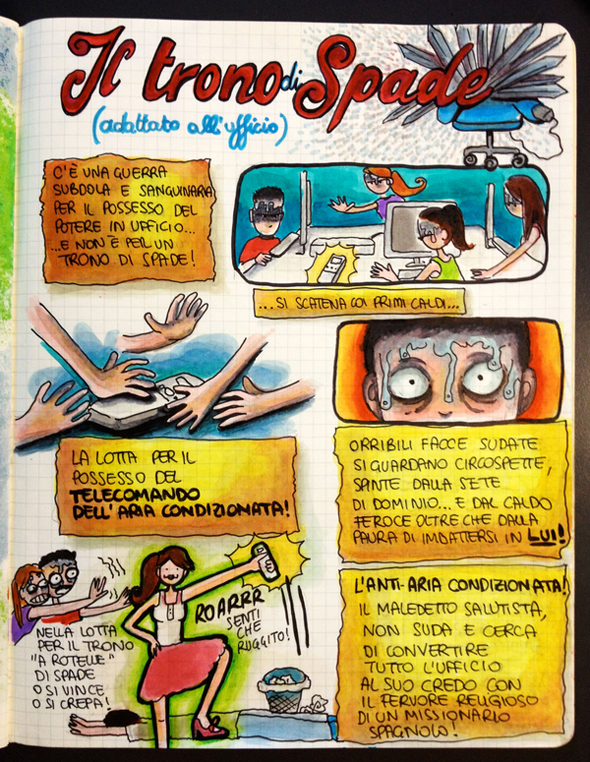 Il trono di Spade
(adattato all'ufficio)
C'È UNA GUERRA
SUBDOLA E SANGUINARIA
PER IL POSSESSO DEL
POTERE IN UFFICIO...
...E NON È PER UN
TRONO DI SPADE!
...SI SCATENA COI PRIMI CALDI...
LA LOTTA PER IL
POSSESSO DEL
TELECOMANDO
DELL'ARIA CONDIZIONATA!
ORRIBILI FACCE SUDATE
SI GUARDANO CIRCOSPETTE,
SPINTE DALLA SETE
DI DOMINIO... E DAL CALDO
FEROCE OLTRE CHE DALLA
PAURA DI IMBATTERSI IN LUI!
NELLA LOTTA
PER IL TRONO
"A ROTELLE"
DI SPADE
O SI VINCE
O SI CREPA!
ROARRR
SENTI
CHE
RUGGITO!
L'ANTI-ARIA CONDIZIONATA!
IL MALEDETTO SALUTISTA,
NON SUDA E CERCA
DI CONVERTIRE
TUTTO L'UFFICIO
AL SUO CREDO CON
IL FERVORE RELIGIOSO
DI UN MISSIONARIO
SPAGNOLO!